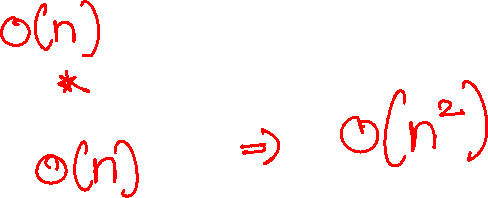 O(n)
*
O(n) ⇒ O(n²)